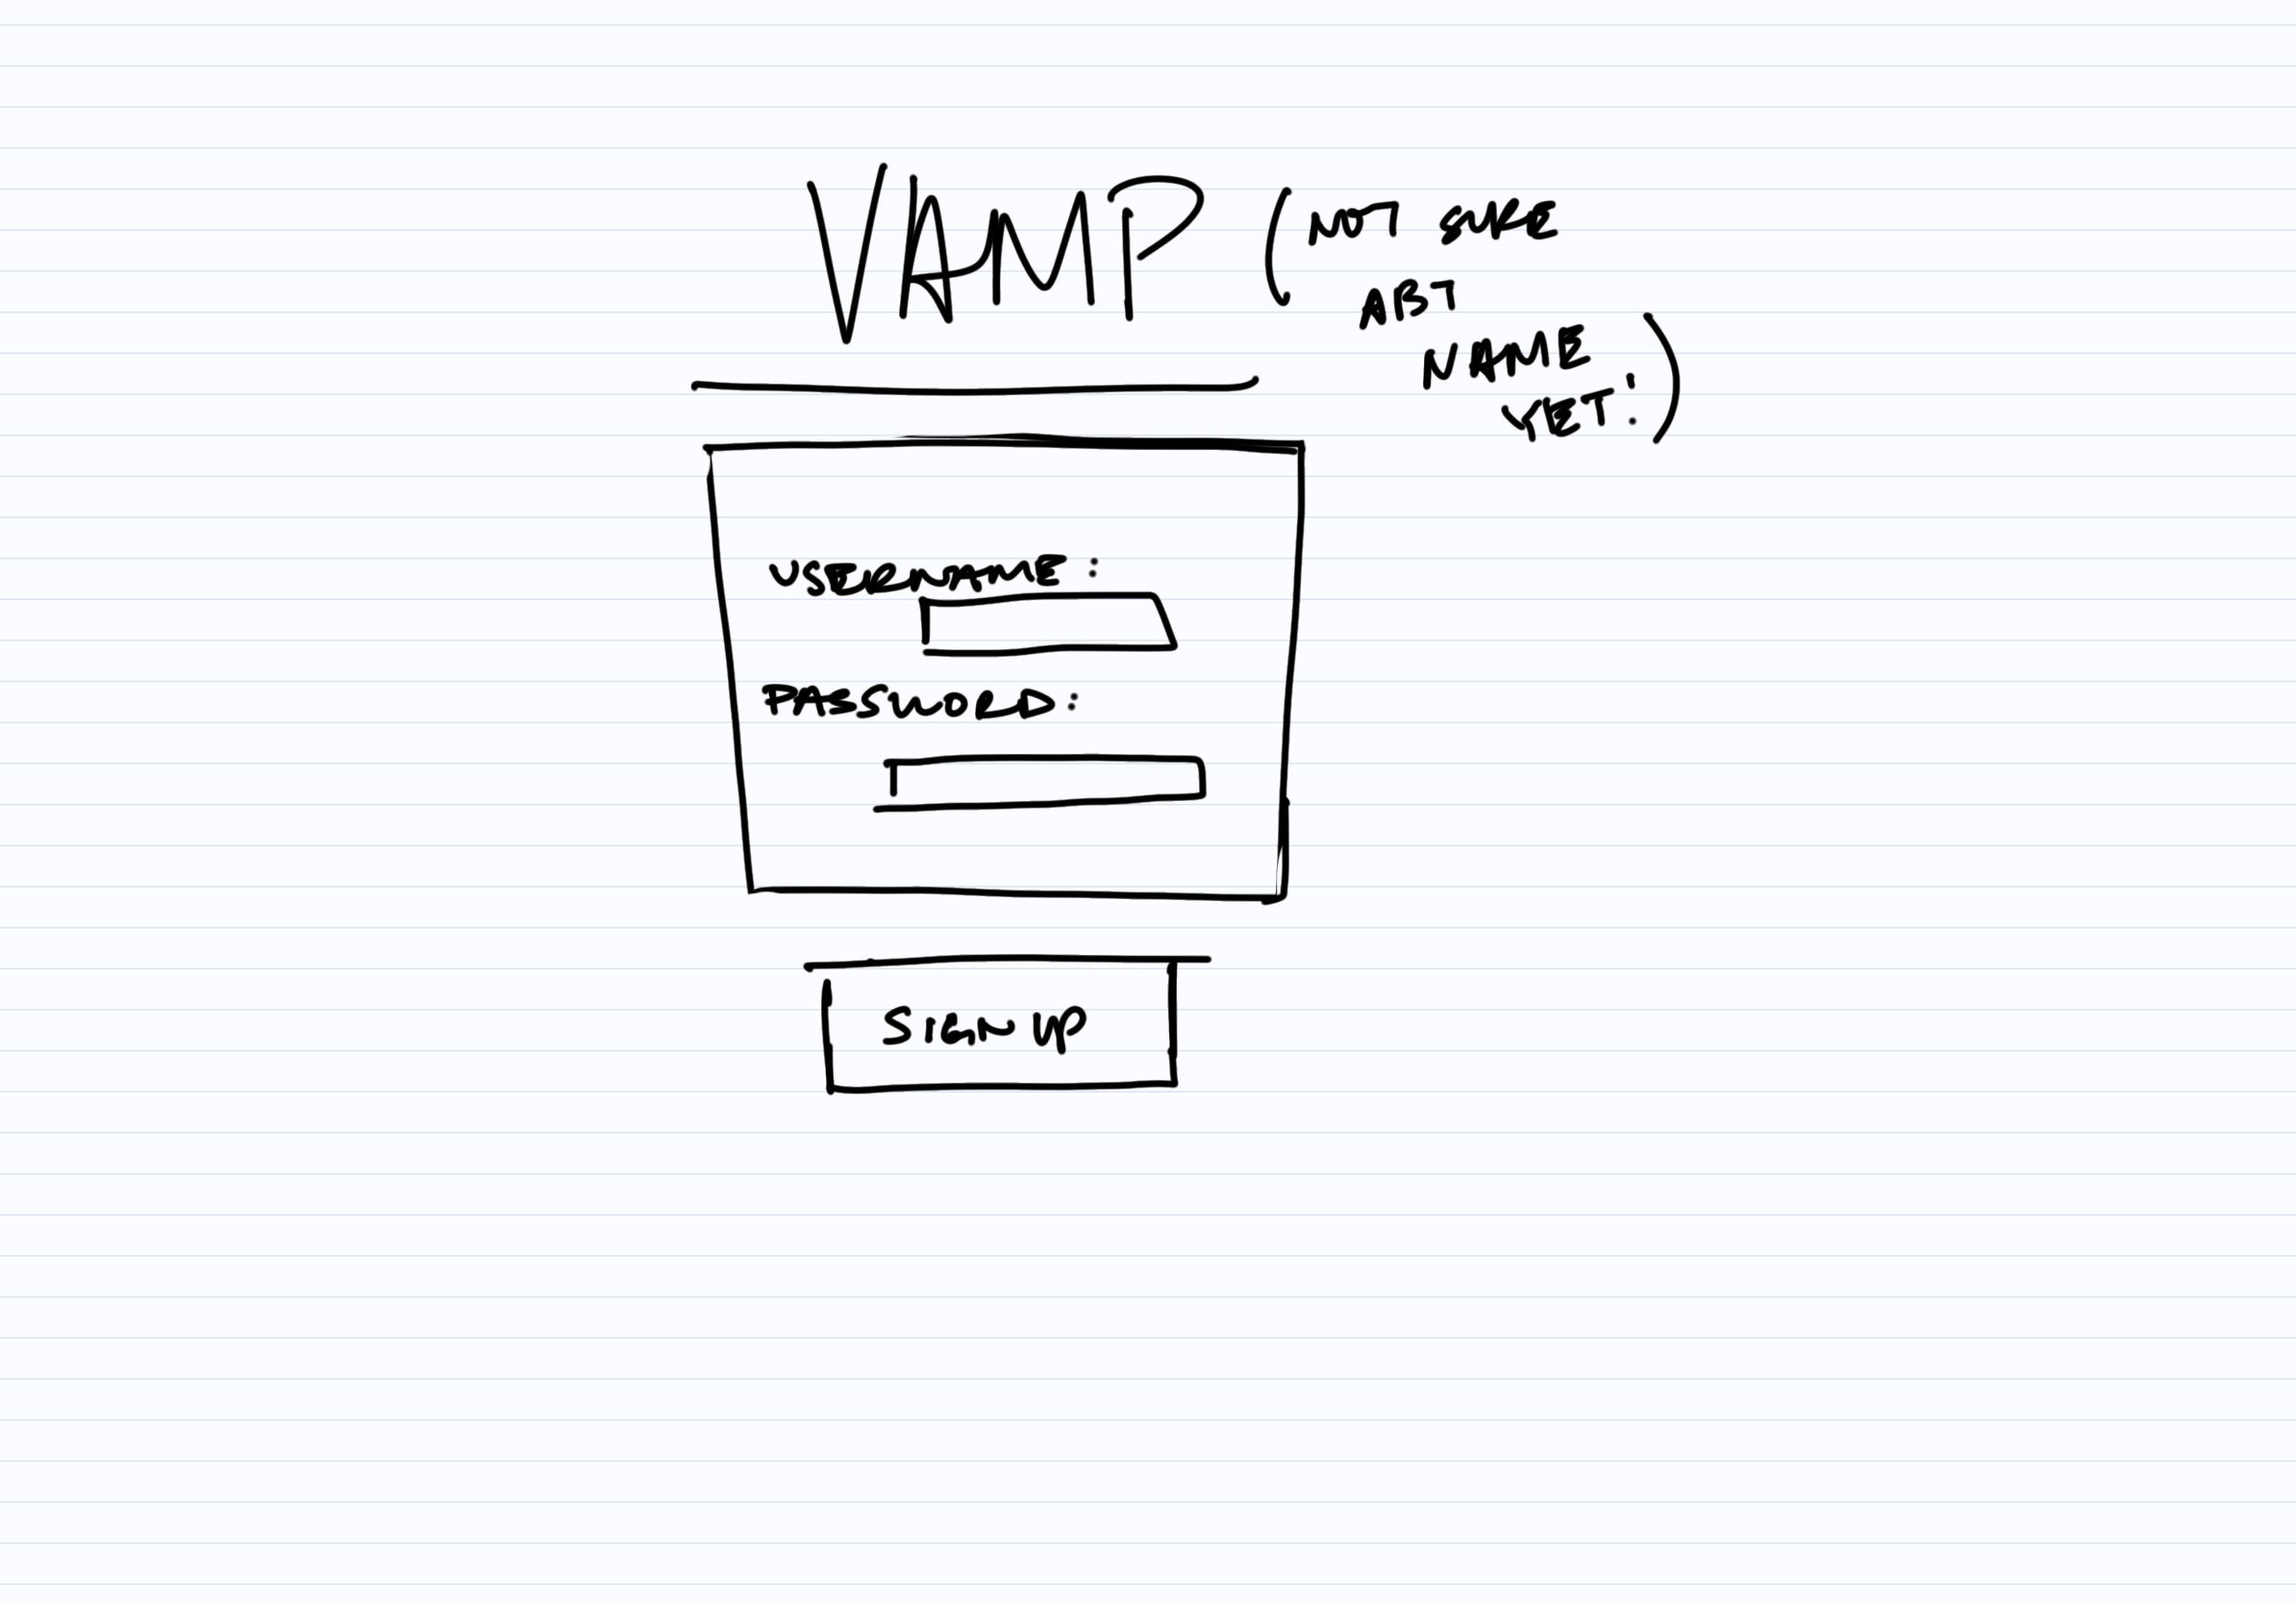 VAMP (NOT SURE
ABT
NAME
YET!)
USERNAME:
PASSWORD:
SIGN UP